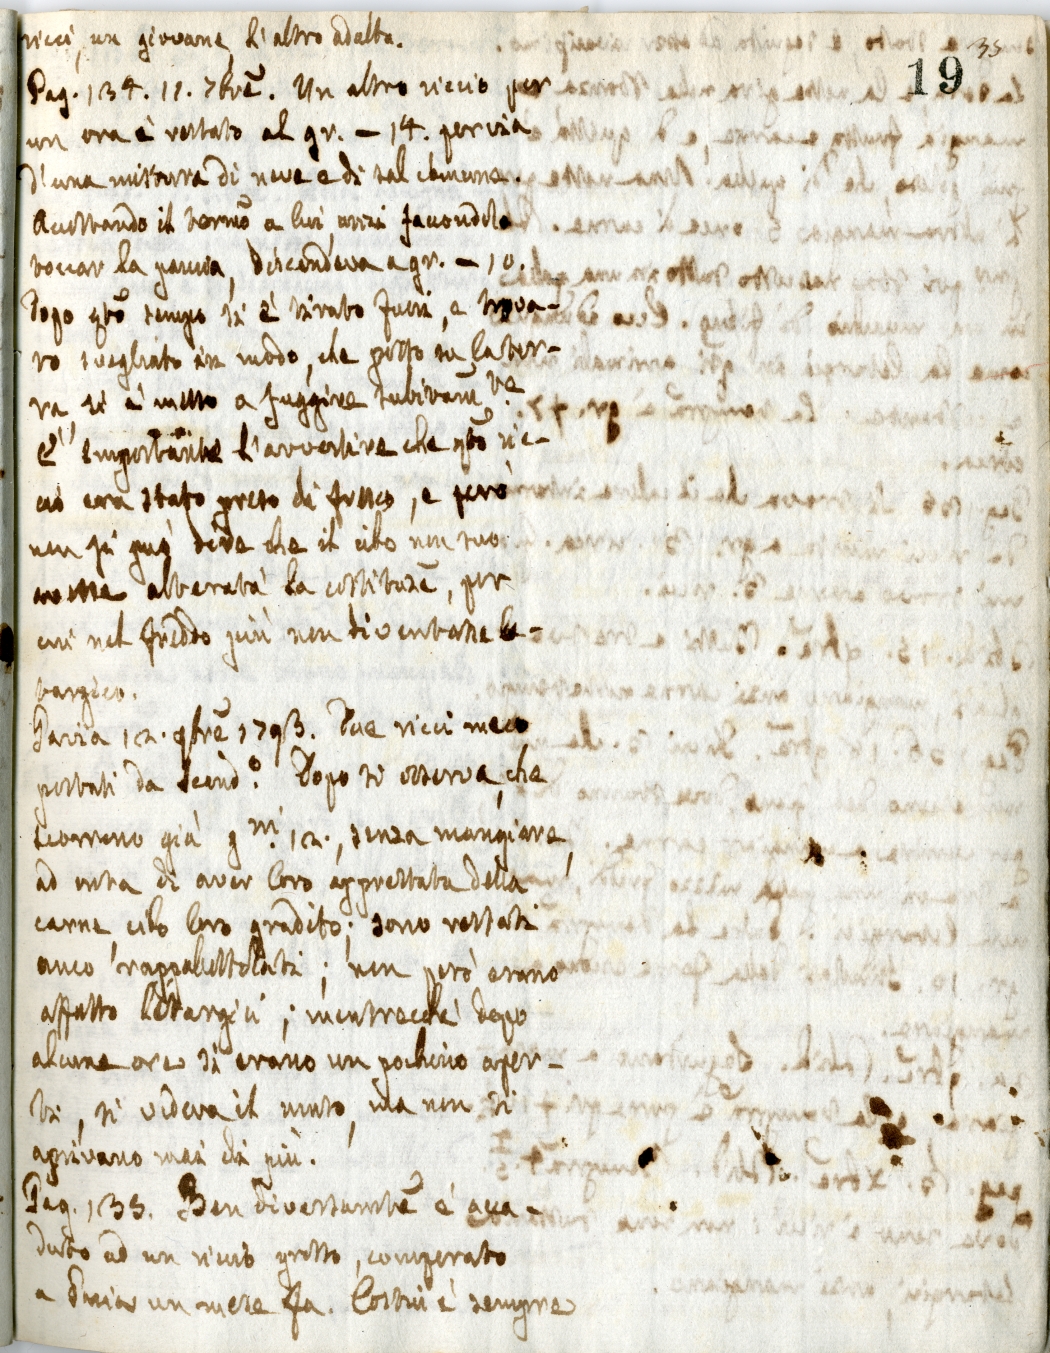 ricci, un giovane, l'altro adulto.
35
19
Pag. 134. 11. 7brē. Un altro riccio per
un ora è restato al gr. – 14. per via
d'una missura di neve e di sal comune.
Accostando il termō a lui, anzi facendolo
toccar la pancia, discendeva a gr. – 10.
Dopo qtō tempo si è tirato fuori, e trova-
to svegliato in modo, che posto su la ter-
ra si è messo a fuggire subitamte.
E' importante l'avvertire che qtō ric-
cio era stato preso di fresco, e però
non si può dire che il cibo non suo
alterata la costituzē, per
cui nel freddo più non diventasse le-
targico.
Pavia 12. 9brē 1793. Due ricci meco
portati da Scando. Dopo si osserva, che
scorrono già gni 12., senza mangiare,
ad onta di aver loro apprestata della
carne, cibo loro gradito; sono restati
anco rappallottolati; non però erano
affatto letargici; mentrecchè dopo
alcune ore si erano un pochino aper-
ti, si vedeva il muso, ma non si
aprivano mai di più.
Pag. 133. Ben diversamtē è acca-
duto ad un riccio grosso, comperato
a Pavia un mese fa. Costui è sempre